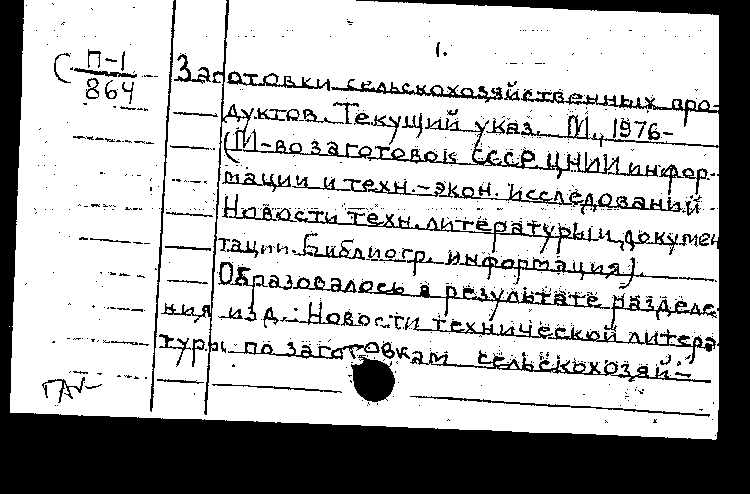 1.
С П-1
864
Заготовки сельскохозяйственных про-
дуктов. Текущий указ. М., 1976-
(М-во заготовок СССР. ЦНИИ инфор-
мации и техн.-экон. исследований
Новости техн. литературы и докумен
тации. Библиогр. информация).
Образовалось в результате разделе-
ния изд.: Новости технической литера-
туры по заготовкам сельскохозяй-